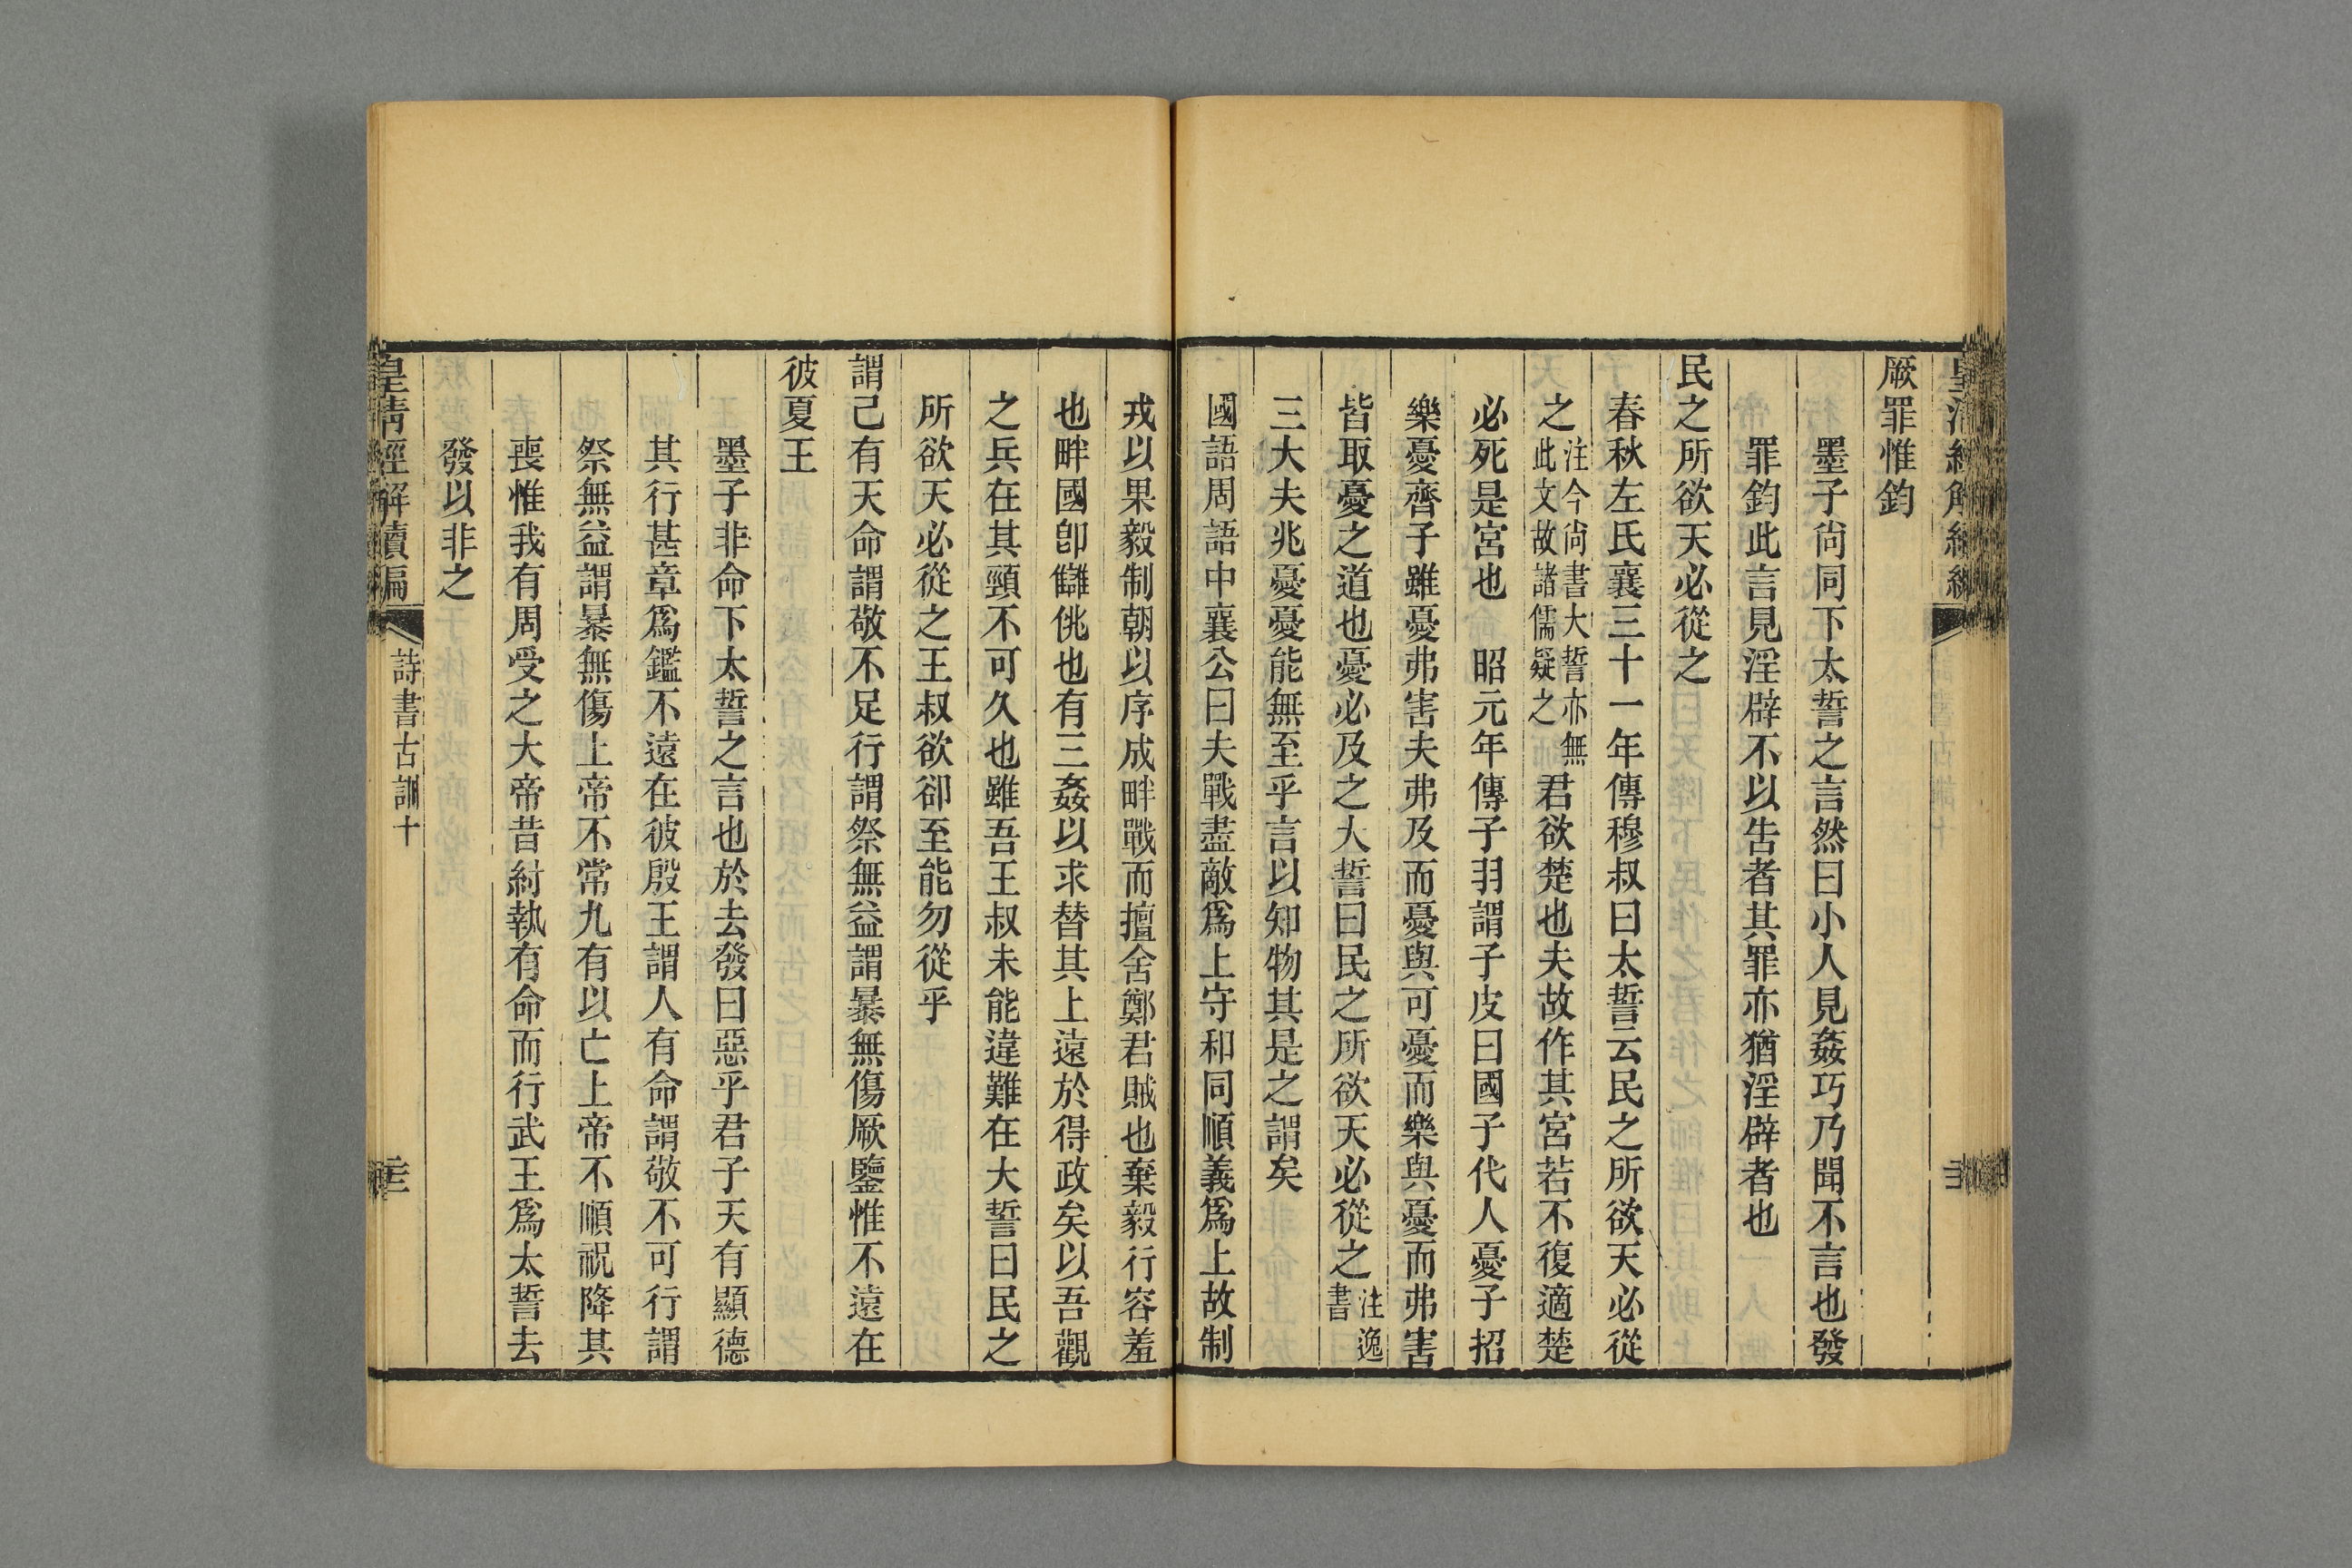 厥罪惟鈞
墨子尚同下太誓之言然曰小人見姦巧乃聞不言也發
罪鈞此言見淫辟不以告者其罪亦猶淫辟者也
民之所欲天必從之
春秋左氏襄三十一年傳穆叔曰太誓云民之所欲天必從
之注今尚書大誓亦無此文故諸儒疑之君欲楚也夫故作其宮若不復適楚
必死是宮也　昭元年傳子羽謂子皮曰國子代人憂子招
樂憂齊子雖憂弗害夫弗及而憂與可憂而樂與憂而弗害
皆取憂之道也憂必及之大誓曰民之所欲天必從之注逸書
三大夫兆憂憂能無至乎言以知物其是之謂矣
國語周語中襄公曰夫戰盡敵爲上守和同順義爲上故制
戎以果毅制朝以序成畔戰而擅舍鄭君賊也棄毅行容羞
也畔國卽讎佻也有三姦以求替其上遠於得政矣以吾觀
之兵在其頸不可久也雖吾王叔未能違難在大誓曰民之
所欲天必從之王叔欲卻至能勿從乎
謂己有天命謂敬不足行謂祭無益謂暴無傷厥鑒惟不遠在
彼夏王
墨子非命下太誓之言也於去發曰惡乎君子天有顯德
其行甚章爲鑑不遠在彼殷王謂人有命謂敬不可行謂
祭無益謂暴無傷上帝不常九有以亡上帝不順祝降其
喪惟我有周受之大帝昔紂執有命而行武王爲太誓去
發以非之
皇清經解續編
詩書古訓十